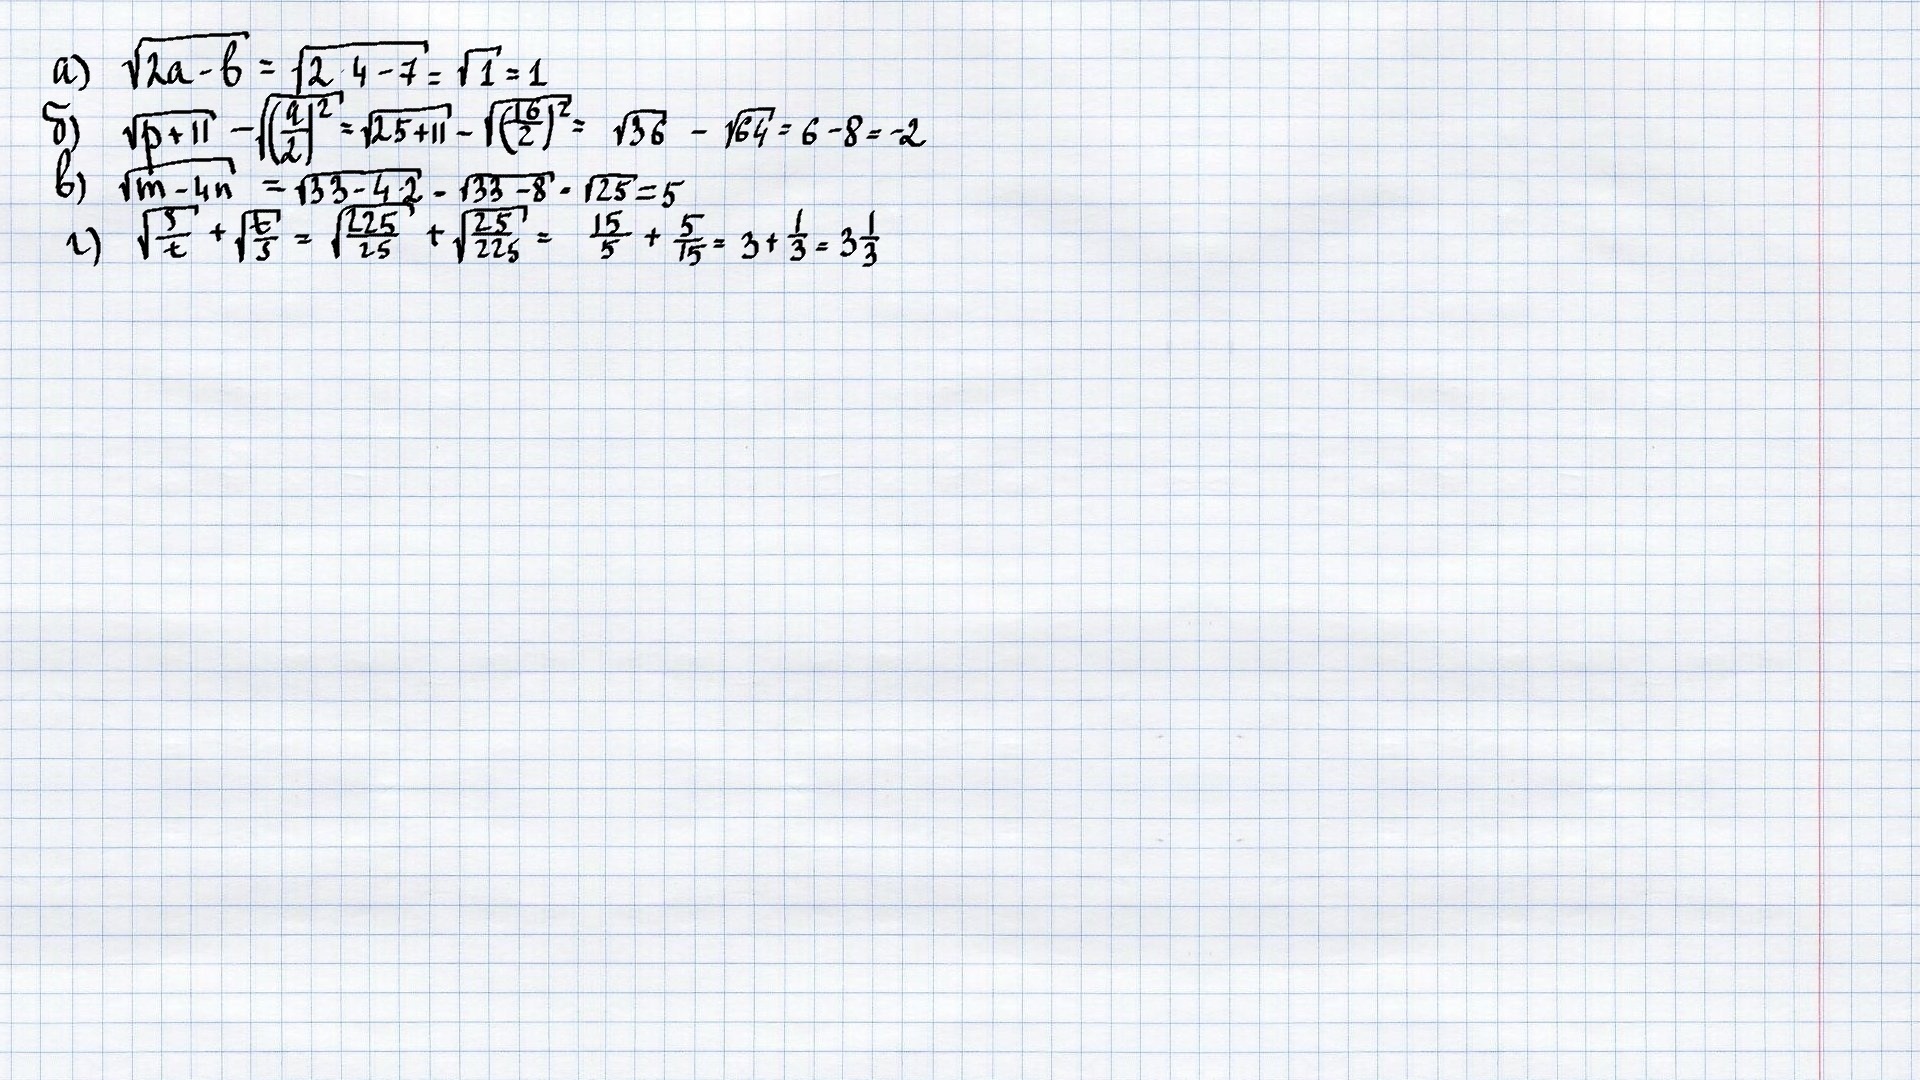 а) √(2a - b) = √(2 4 - 7) = √1 = 1
б) √(p + 11) - √((q/2)²) = √(25 + 11) - √((16/2)²) = √36 - √64 = 6 - 8 = -2
в) √(m - 4n) = √(33 - 4·2) - √(33 - 8) - √25 = 5
г) √(s/t) + √(t/s) = √(225/25) + √(25/225) = 15/5 + 5/15 = 3 + 1/3 = 3 1/3